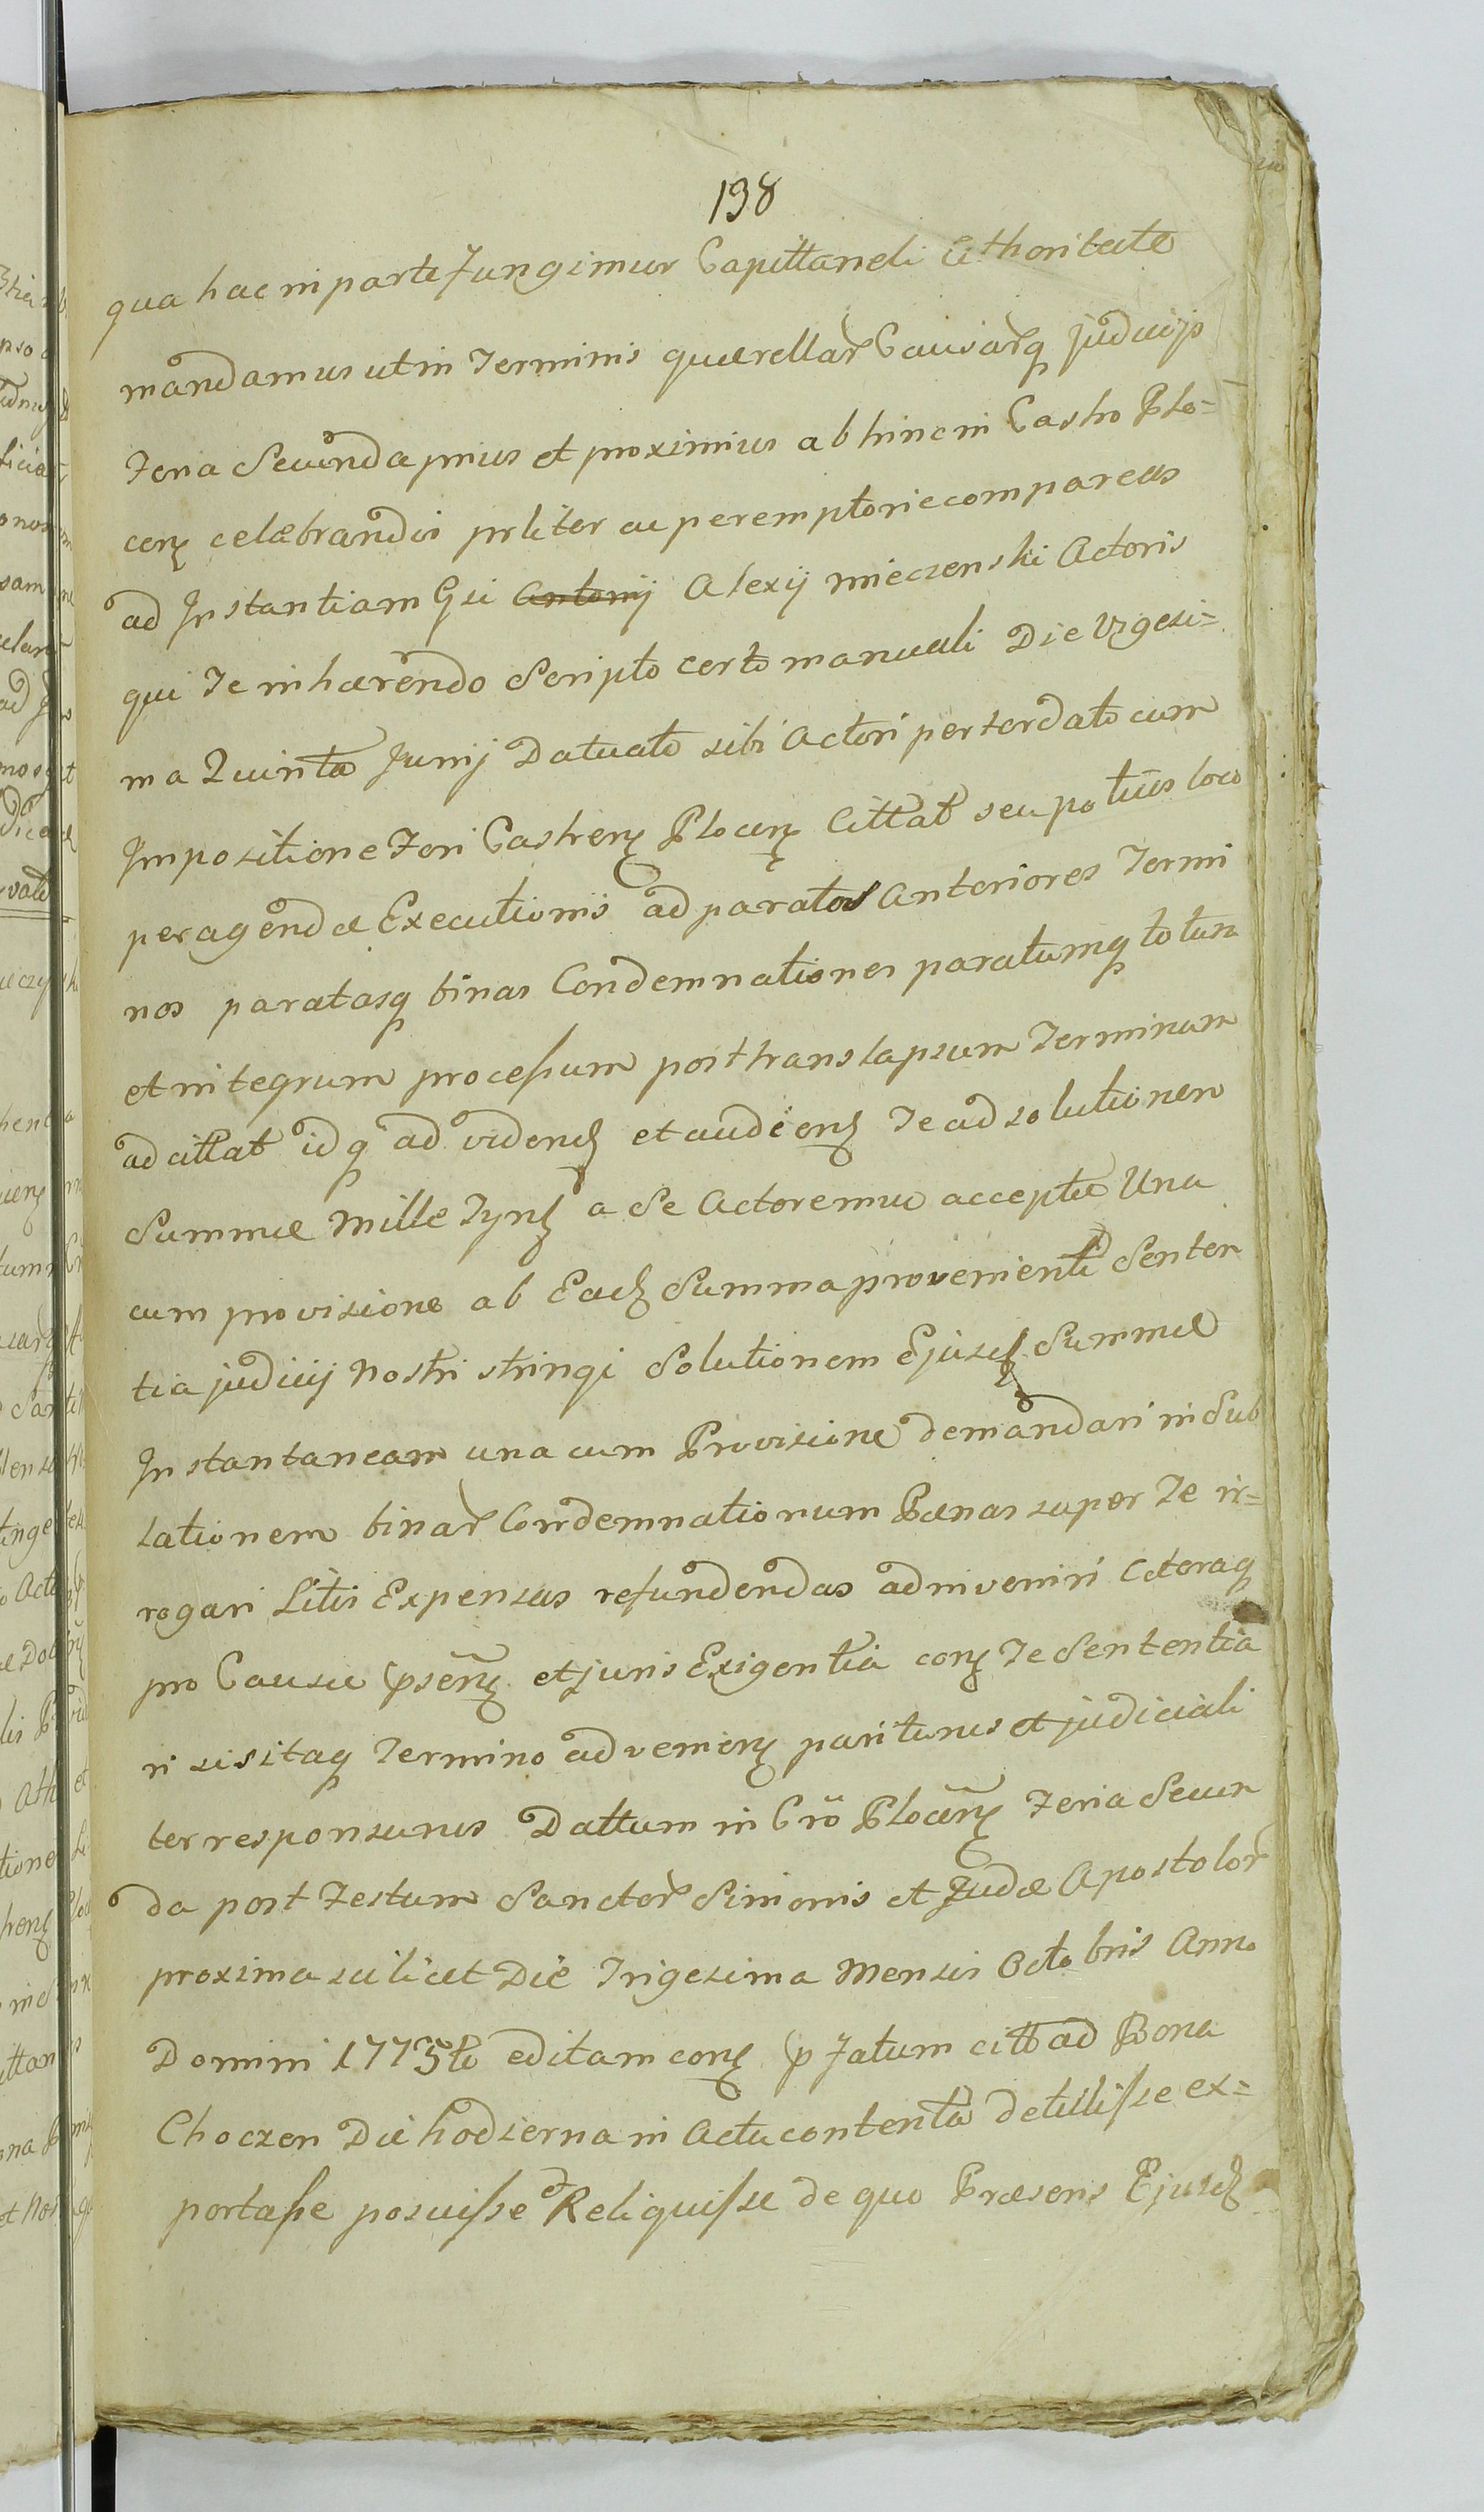 198
qua hac in parte fungimur Capittaneli Athoritate
mandamus ut in Terminis quærellar Causarq judiciis
Feria Secunda prius et proximius ab hinc in Castro Plo=
cen celæbrandis prliter ac peremptorie compareas
ad Instantiam Gsi Antonij Alexij mieczenski Actoris
qui Te inhærendo Scripto certo manuali Die Vigesi=
ma Quinta Junij Datuato sibi Actori per te dato cum
Impositione Fori Castren Plocen Cittat seu potius loco
peragendæ Executionis ad paratos Anteriores Termi
nos paratasq binas Condemnationes paratumq totum
et integrum processum post translapsum Terminum
adcittat idq ad videnđ et audienđ Te ad solutionem
Summæ Mille Tynf a Se Actore muo acceptæ Una
cum provisione ab Eadđ Summa provenienti Senten
tia judicij Nostri stringi Solutionem Ejusdđ Summæ
Instantaneam una cum Provisione demandari in Sub
lationem binar Condemnationum Pænas super Te ir=
rogari Litis Expensas refundendas adinveniri Cæteraq
pro Causæ psen et juris Exigentia con Te Sententia
ri sisitaq Termino advenien pariturus et judiciali
ter responsurus Dattum in Cro Plocen Feria Secun
da post Festum Sanctor Simonis et Judæ Apostolor
proxima scilicet Die Trigesima Mensis Octobris Anno
Domini 1775to editam con pfatum citt ad Bona
Choczen Die hodierna in Actu contenta detulisse ex=
portasse posuisse et Reliquisse de quo Præsens Ejusdđ